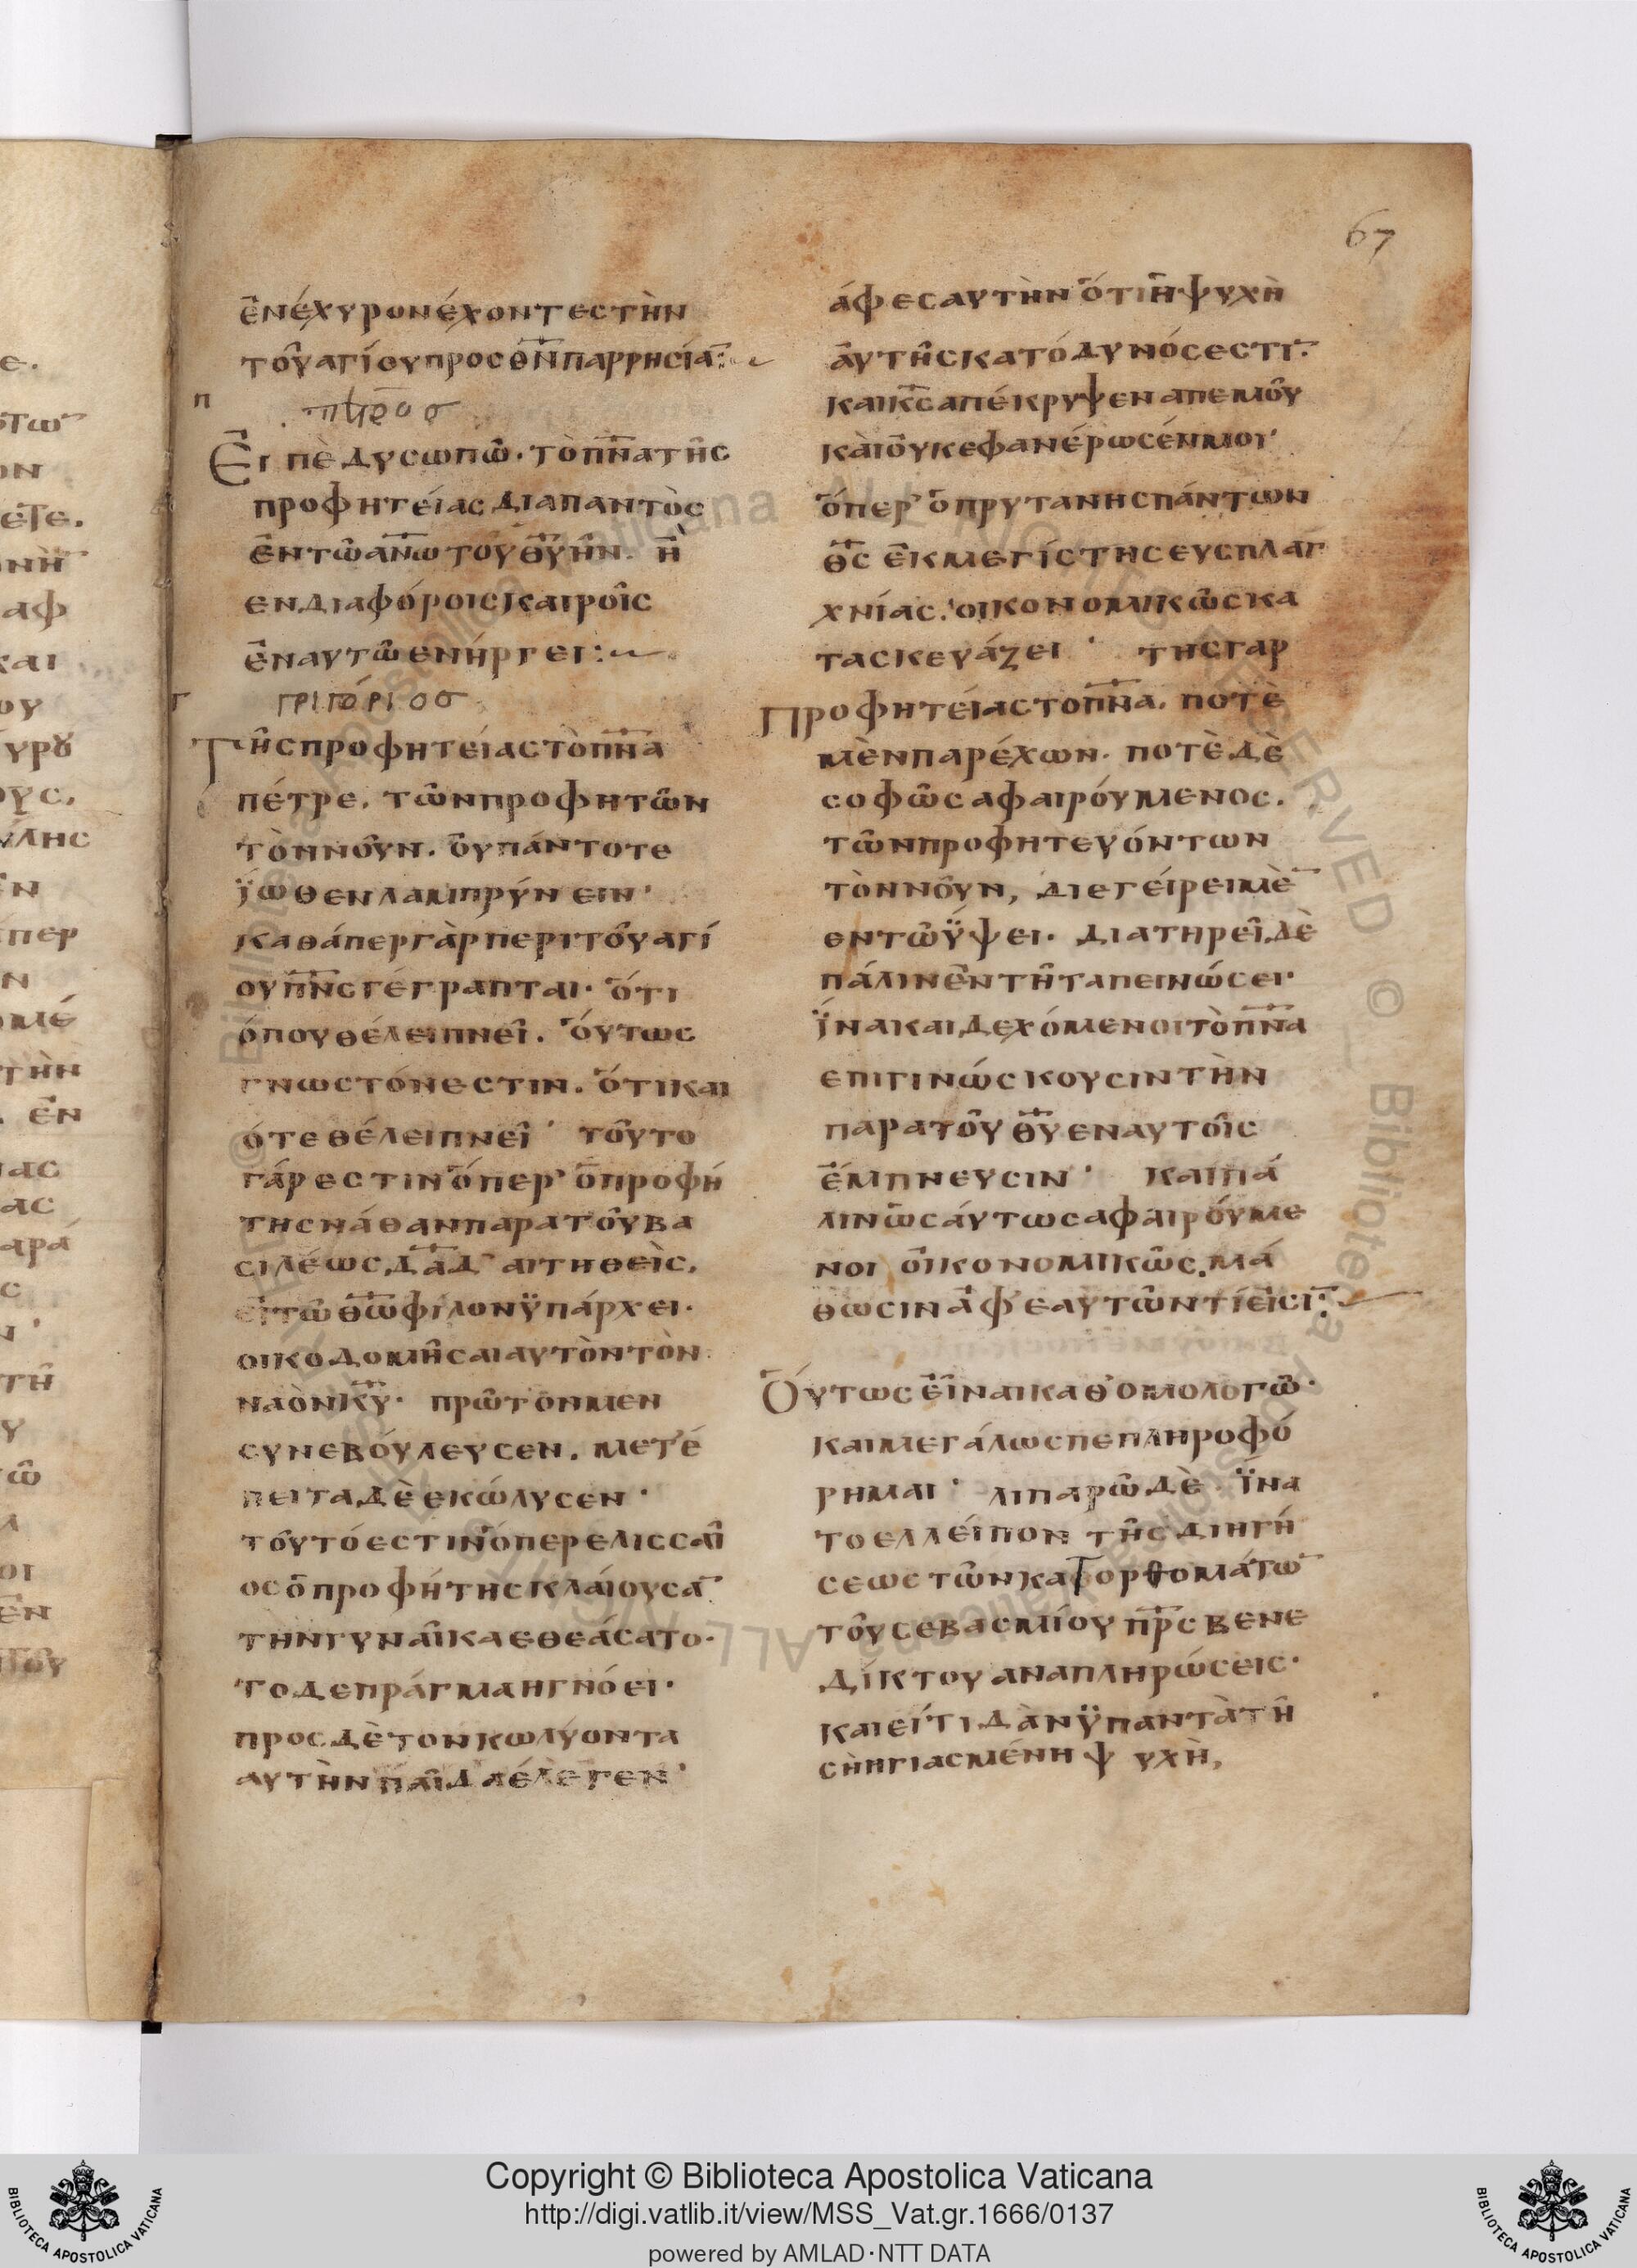 67
ἐνέχυρον ἔχοντες τὴν
τοῦ αγίου προς θ̅ν̅ παρρησία̅:
π
πετρος
Εἰπὲ δυσωπῶ. τὸ π̅ν̅α της
προφητείας διαπαντὸς
ἐν τῶ α̅ν̅ω τοῦ θ̅υ̅ ἦν. ἢ
εν διαφόροις καιροῖς
ἐν αυτῶ ενήργει:
γ
γριγόριοσ
Τῆς προφητείας τὸ π̅ν̅α
πέτρε. τῶν προφητῶν
τὸν νοῦν. οὐ πάντοτε
ϊώθεν λαμπρύνειν·
καθάπερ γὰρ περι τοῦ αγί
ου π̅ν̅ς γέγραπται· ὅτι
ὅπου θέλει πνεῖ. ὅυτως
γνωστόν εστιν. ὅτι και
ὅτε θέλει πνεῖ· τοῦτο
γάρ εστιν ὅπερ ὁ προφή
της νάθαν παρα τοῦ βα
σιλέως δ̅α̅δ αιτηθεὶς,
εἰ τῶ θ̅ω̅ φίλον ϋπάρχει.
οικοδομῆσαι αυτὸν τὸν
ναὸν κ̅υ̅· πρῶτον μεν
συνεβόυλευσεν. μετέ
πειτα δὲ εκώλυσεν·
τοῦτό εστιν ὅπερ ελισσαῖ
ος ὁ προφήτης κλάιουσα̅
την γυναῖκα εθεάσατο·
το δε πράγμα ηγνόει·
προς δὲ τον κωλύοντα
αυτὴν παῖδα έλεγεν·
άφες αυτὴν ὅτι ἡ ψυχὴ
ἀυτῆς κατόδυνός εστι̅.
και κ̅ς̅ απέκρυψεν απ εμοῦ
κὰι οὐκ εφανέρωσέν μοι·
ὅπερ ὁ πρυτανης πάντων
θ̅ς̅ ἐκ μεγίστης ευσπλαγ
χνίας. οικονομικῶς κα
τασκευάζει· της γαρ
προφητείας το π̅ν̅α. ποτὲ
μὲν παρέχων. ποτὲ δὲ
σοφῶς αφαιρόυμενος.
τῶν προφητευόντων
τὸν νοῦν, διεγείρει μὲ̅
εν τῶ ϋψει. διατηρεῖ δὲ
πάλιν ἐν τῆ ταπεινώσει·
ϊνα και δεχόμενοι τὸ π̅ν̅α
επιγινώσκουσιν τὴν
παρα τοῦ θ̅υ̅ εν αυτοῖς
ἔμπνευσιν· και πά
λιν ὡσάυτως αφαιρόυμε
νοι οἰκονομικῶς. μά
θωσιν ἀφ εαυτῶν τί εἰσι̅:
Ὅυτως εἶναι καθ ομολογῶ·
και μεγάλως πεπληροφό
ρημαι· λιπαρῶ δὲ ϊνα
το ελλείπον τῆς διηγή
σεως τῶν κατορθομάτω̅
τοῦ σεβασμίου π̅ρ̅ς βενε
δίκτου αναπληρώσεις·
και εί τι δ ὰν ϋπαντὰ τῆ
σὴ ηγιασμένη ψυχὴ,
Copyright © Biblioteca Apostolica Vaticana
http://digi.vatlib.it/view/MSS_Vat.gr.1666/0137
powered by AMLAD·NTT DATA
BIBLIOTECA APOSTOLICA VATICANA
BIBLIOTECA APOSTOLICA VATICANA